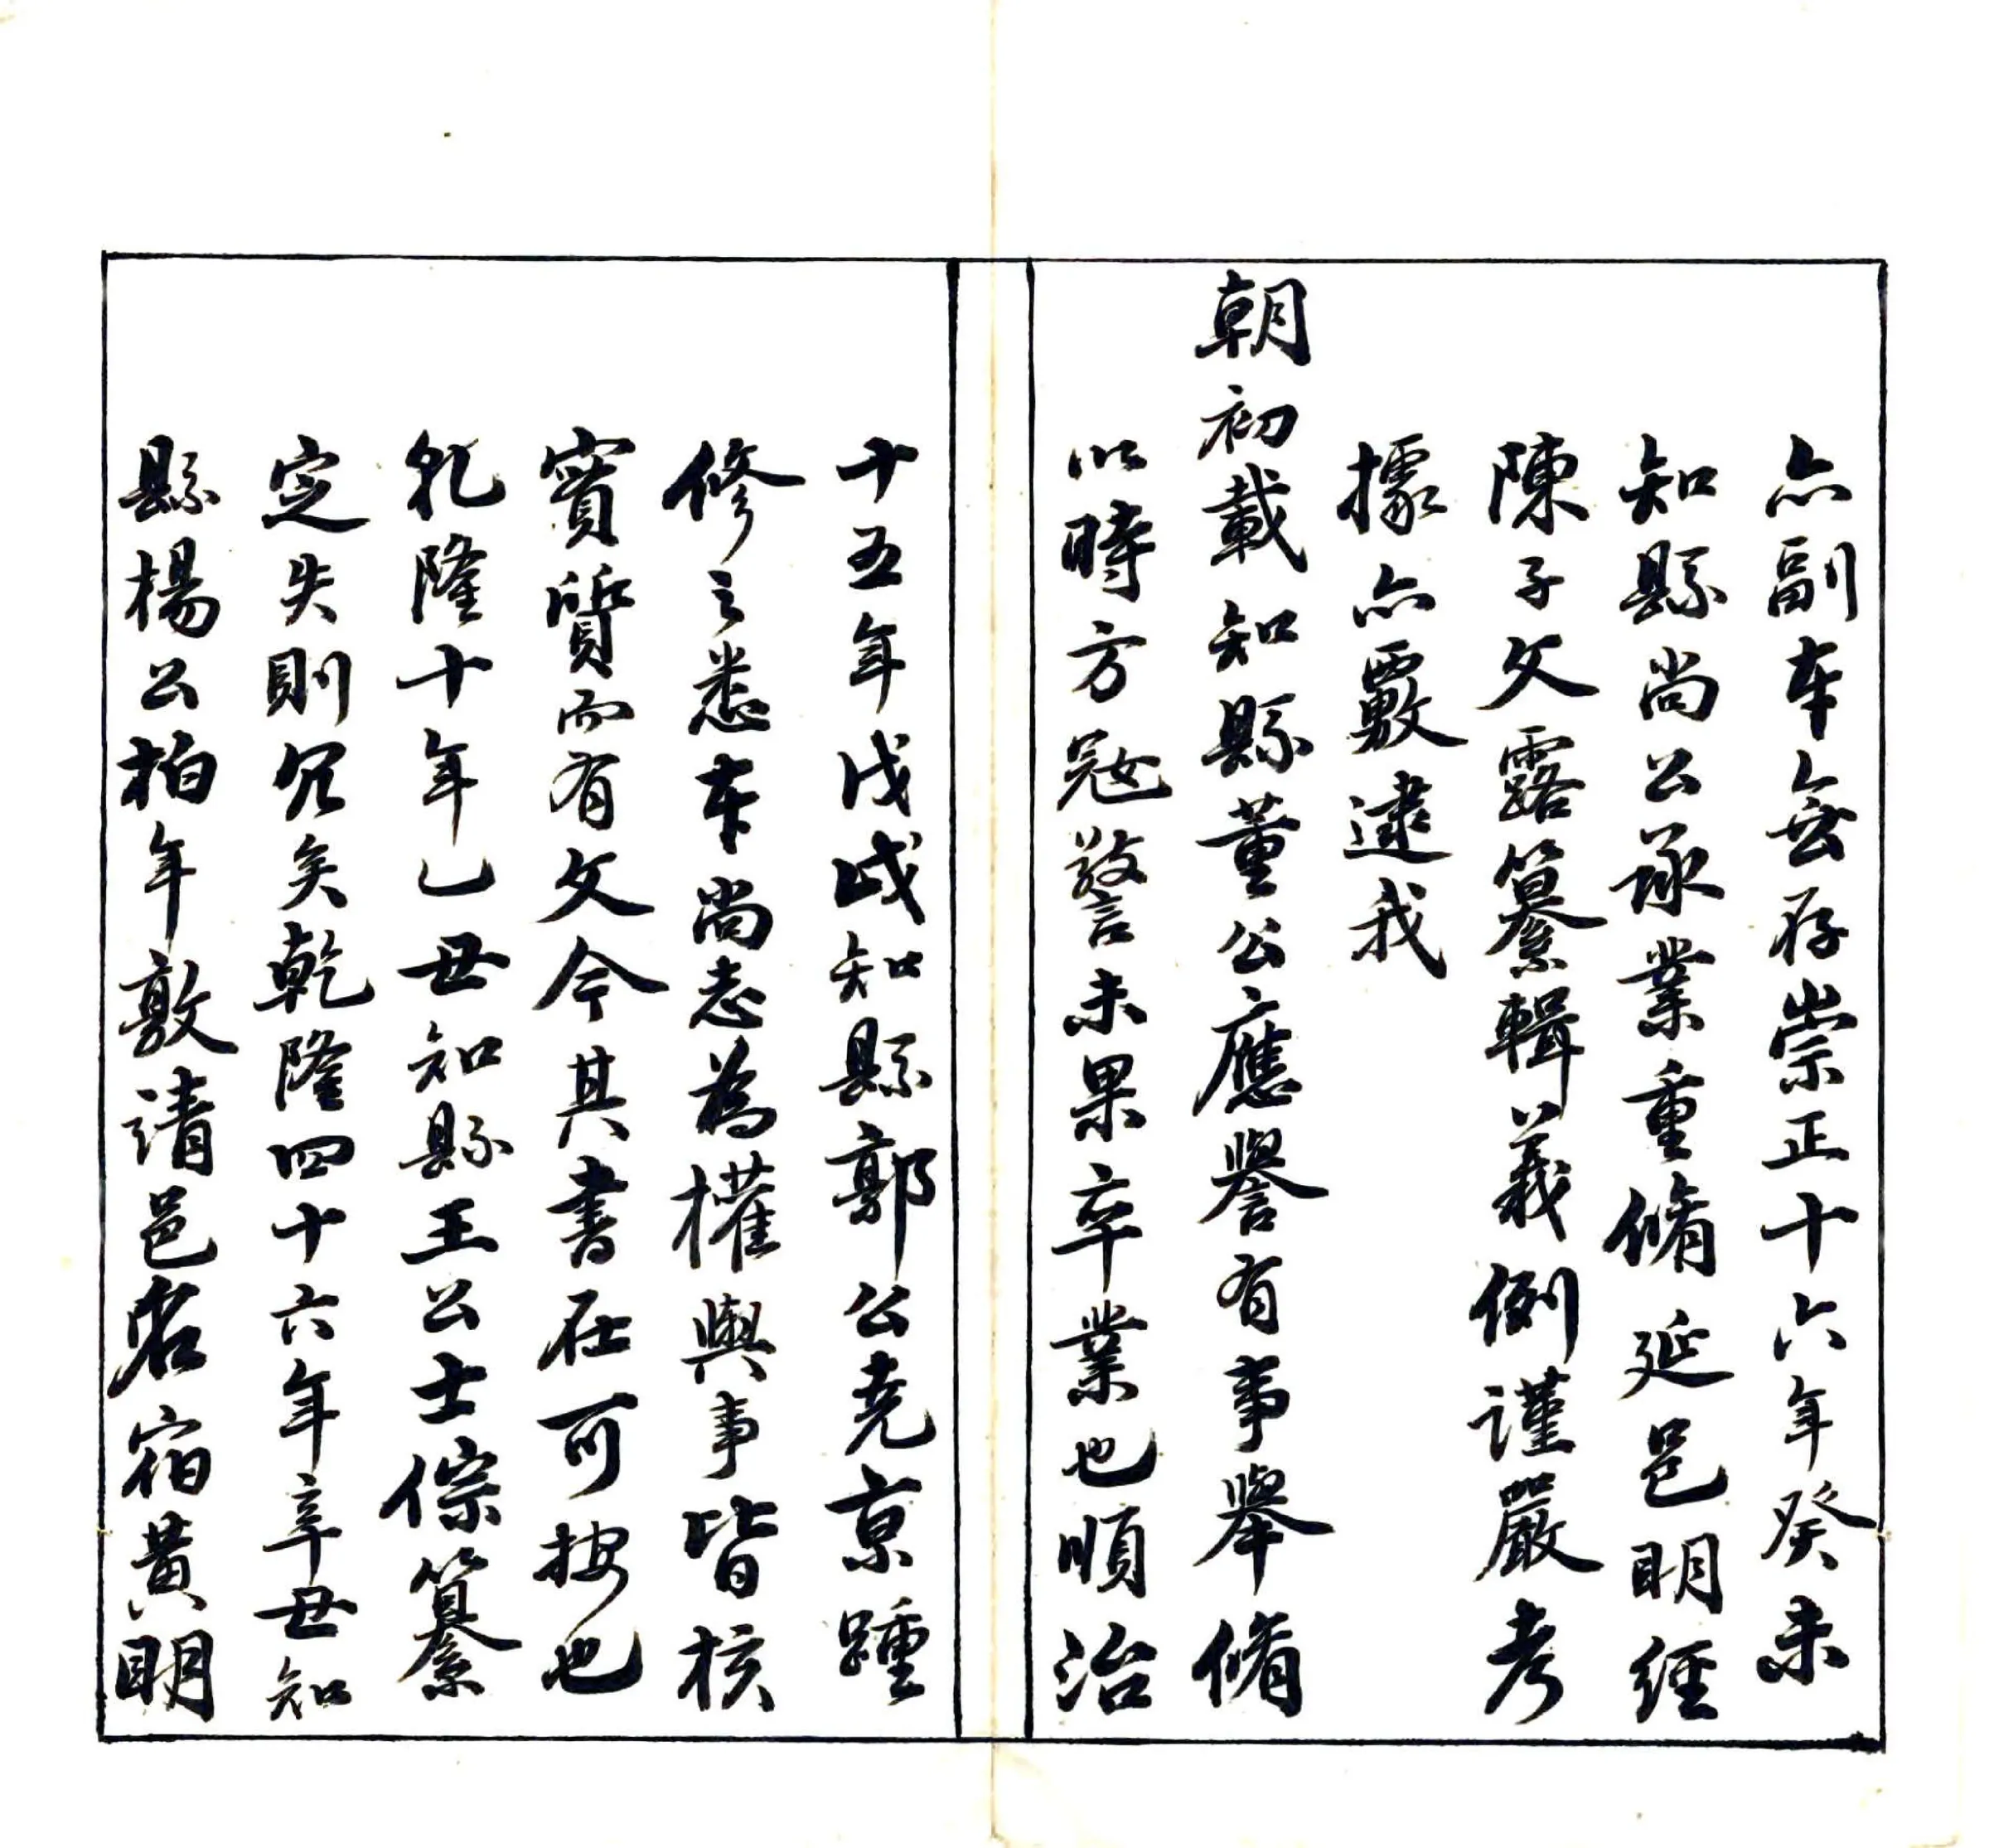 亦副本無存崇正十六年癸未
知縣尚公承業重脩延邑明經
陳子文露纂輯義例謹嚴考
據亦覈逮我
朝初載知縣董公應譽有事舉脩
以時方冦警未果卒業也順治
十五年戊戌知縣郭公堯京踵
修之悉本尚志為權輿事皆核
實質而有文今其書在可按也
乾隆十年乙丑知縣王公士倧纂
定失則冗矣乾隆四十六年辛丑知
縣楊公柏年敦請邑名宿黃明